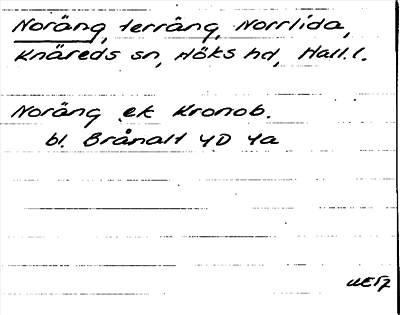 Noräng, terräng, Norrlida,
Knäreds sn, Höks hd, Hall. l.
Noräng ek Kronob.
bl. Brånalt 4D 4a